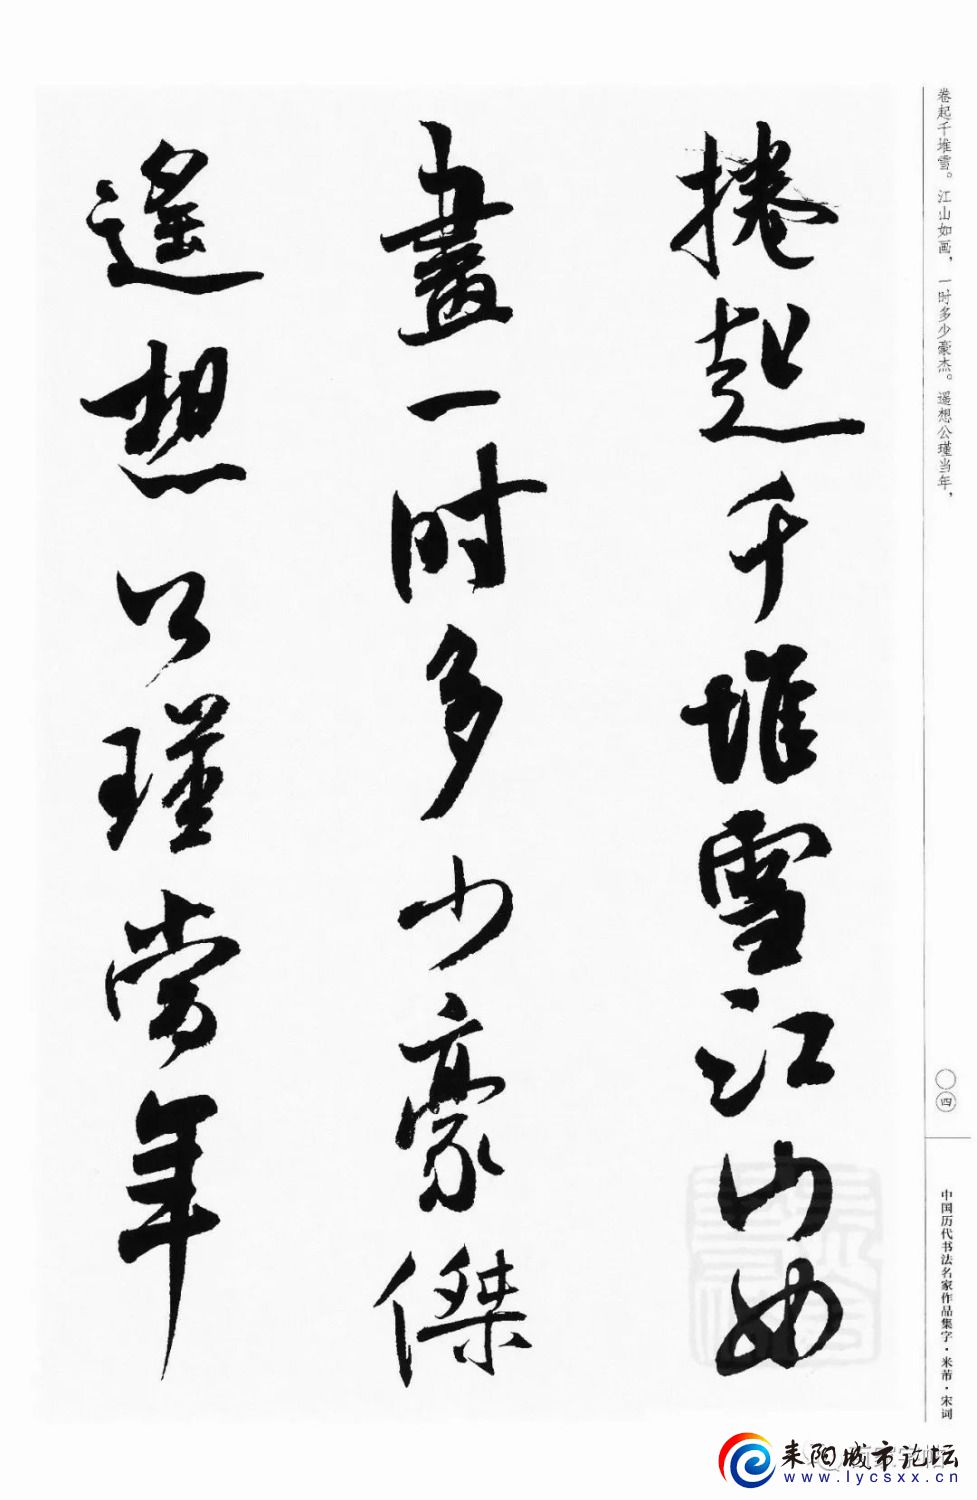 卷起千堆雪。江山如画，一时多少豪杰。遥想公瑾当年，
捲起千堆雪江山如
畫一时多少豪傑
遙想公瑾當年
〇四
中国历代书法名家作品集字·米芾·宋词
耒阳城市论坛
www.lycsxx.cn